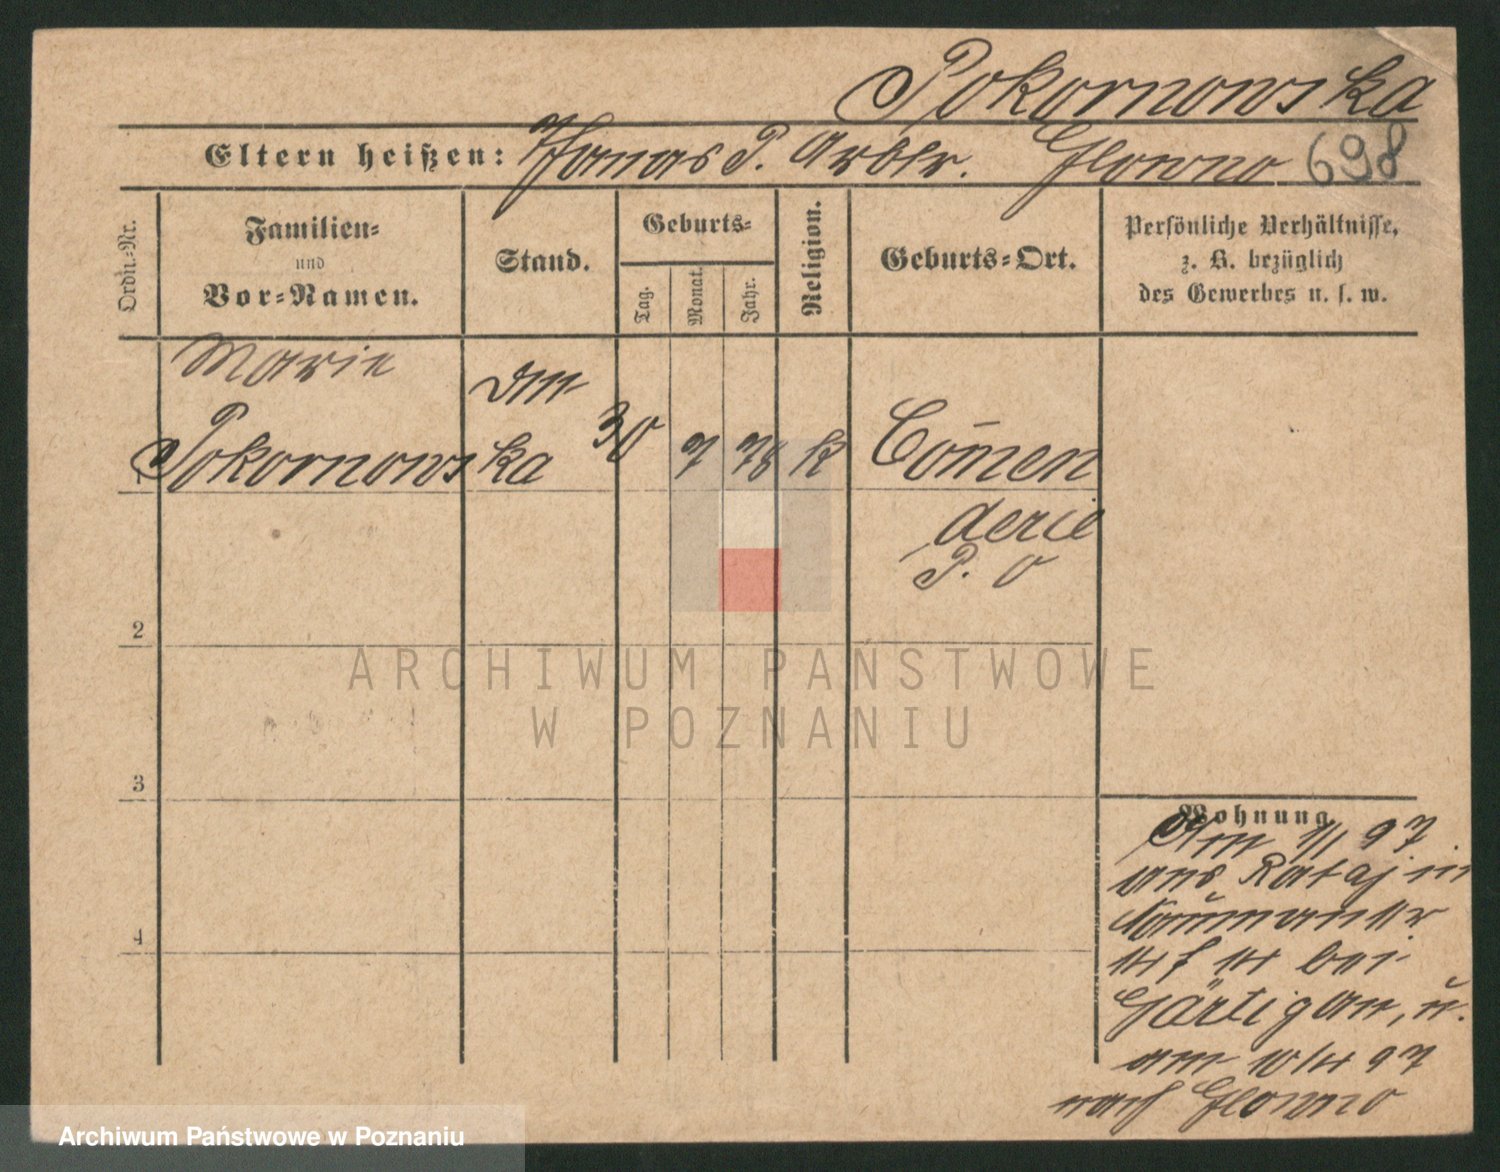 Pokornowska
Eltern heißen: Thomas P. Arbtr. Glowno 698
Ordn.-Nr.
Familien-
und
Vor-Namen.
Stand.
Geburts-
Tag.
Monat.
Jahr.
Religion.
Geburts-Ort.
Persönliche Verhältnisse,
z. B. bezüglich
des Gewerbes u. s. w.
Marie
Pokornowska
1
30 7 78 k Com̅en
derie
P. O
2
3
4
Wohnung
Am 1/1 97
aus Rataj in
bei
Gärtigan, u.
am 10/4 97
nach Glowno
ARCHIWUM PAŃSTWOWE
W POZNANIU
Archiwum Państwowe w Poznaniu